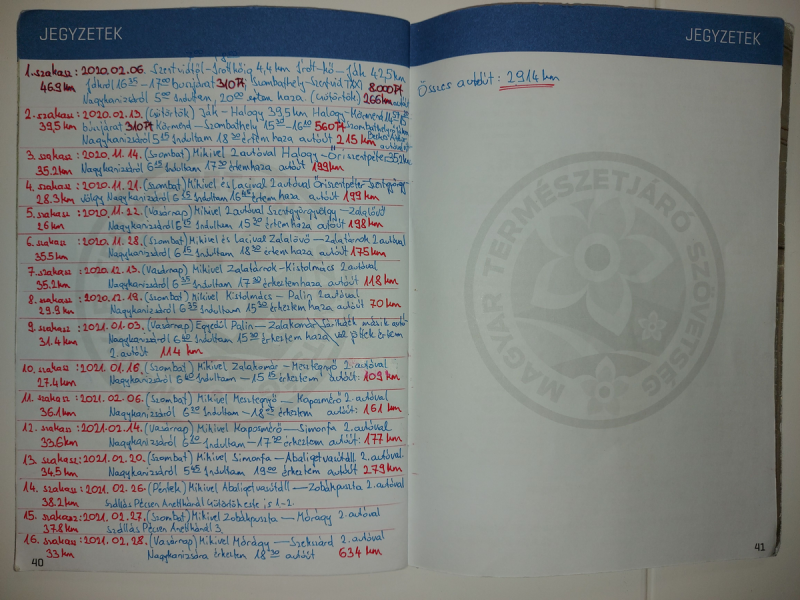 JEGYZETEK
1. szakasz: 2020.02.06. Szentvidtől-Írottkőig 4,4 km Írott-kő — Ják 42,5 km
46.9 km Jákról 16³⁵-17⁰⁰ buszjárat 310 Ft, Szombathely-Szentvid TAXI 8000 Ft
Nagykanizsáról 5⁰⁰ Indultam, 20⁰⁰ értem haza. (Csütörtök) 266 km autóút
2. szakasz: 2020.02.13. (Csütörtök) Ják - Halogy 39,5 km Halogy-Körmend
39,5 km buszjárat 310 Ft Körmend — Szombathely 15³⁰ - 16¹⁰ 560 Ft
Nagykanizsáról 5¹⁵ Indultam 18³⁰ értem haza autóút 215 km
3. szakasz: 2020.11.14. (Szombat) Mikivel 2 autóval Halogy - Őriszentpéter 35.2 km
35.2 km Nagykanizsáról 6¹⁵ Indultam 17³⁰ értem haza autóút 199 km
4. szakasz: 2020.11.21. (Szombat) Mikivel és Lacival 2 autóval Őriszentpéter-Szentgyörgy
28.3 km völgy Nagykanizsáról 6¹⁵ Indultam 16⁴⁵ értem haza autóút 199 km
5. szakasz: 2020.11.22. (Vasárnap) Mikivel 2 autóval Szentgyörgyvölgy — Zalalövő
26 km Nagykanizsáról 6¹⁵ Indultam 15³⁰ értem haza autóút 198 km
6. szakasz: 2020.11.28. (Szombat) Mikivel és Lacival Zalalövő — Zalatárnok 2 autóval
35.5 km Nagykanizsáról 6¹⁵ Indultam 18³⁰ értem haza autóút 175 km
7. szakasz: 2020.12.13. (Vasárnap) Mikivel Zalatárnok - Kistolmács 2 autóval
35.2 km Nagykanizsáról 6³⁵ Indultam 17³⁰ érkeztem haza autóút 118 km
8. szakasz: 2020.12.19. (Szombat) Mikivel Kistolmács — Palin 2 autóval
29.9 km Nagykanizsáról 6³⁵ Indultam 15³⁰ érkeztem haza autóút 70 km
9. szakasz: 2021.01.03. (Vasárnap) Egyedül Palin — Zalakomár másik autó
31.4 km Nagykanizsáról 6⁴⁰ Indultam 15³⁰ érkeztem haza val jöttek értem
2. autóút 114 km
10. szakasz: 2021.01.16. (Szombat) Mikivel Zalakomár - Mesztegnyő 2. autóval
27.4 km Nagykanizsáról 6⁴⁰ Indultam — 15¹⁵ érkeztem autóút: 109 km
11. szakasz: 2021.02.06. (Szombat) Mikivel Mesztegnyő — Kaposmérő 2. autóval
36.1 km Nagykanizsáról 6²⁰ Indultam — 18²⁵ érkeztem autóút: 161 km
12. szakasz: 2021.02.14. (Vasárnap) Mikivel Kaposmérő — Simonfa 2. autóval
33.6 km Nagykanizsáról 6²⁰ Indultam — 17³⁰ érkeztem autóút: 177 km
13. szakasz: 2021.02.20. (Szombat) Mikivel Simonfa — Abaligeti vasútáll 2. autóval
34.5 km Nagykanizsáról 5⁴⁵ Indultam 19⁰⁰ érkeztem autóút 279 km
14. szakasz: 2021.02.26. (Péntek) Mikivel Abaliget vasútáll — Zobákpuszta 2. autóval
38.2 km Szállás Pécsen Anettkánál Csütörtök este is 1-2.
15. szakasz: 2021.02.27. (Szombat) Mikivel Zobákpuszta — Mórágy 2. autóval
37.8 km Szállás Pécsen Anettkánál 3.
16. szakasz: 2021.02.28. (Vasárnap) Mikivel Mórágy — Szekszárd 2. autóval
33 km Nagykanizsára érkeztem 18³⁰ autóút 634 km
40
JEGYZETEK
Összes autóút: 2914 km
MAGYAR TERMÉSZETJÁRÓ SZÖVETSÉG
41